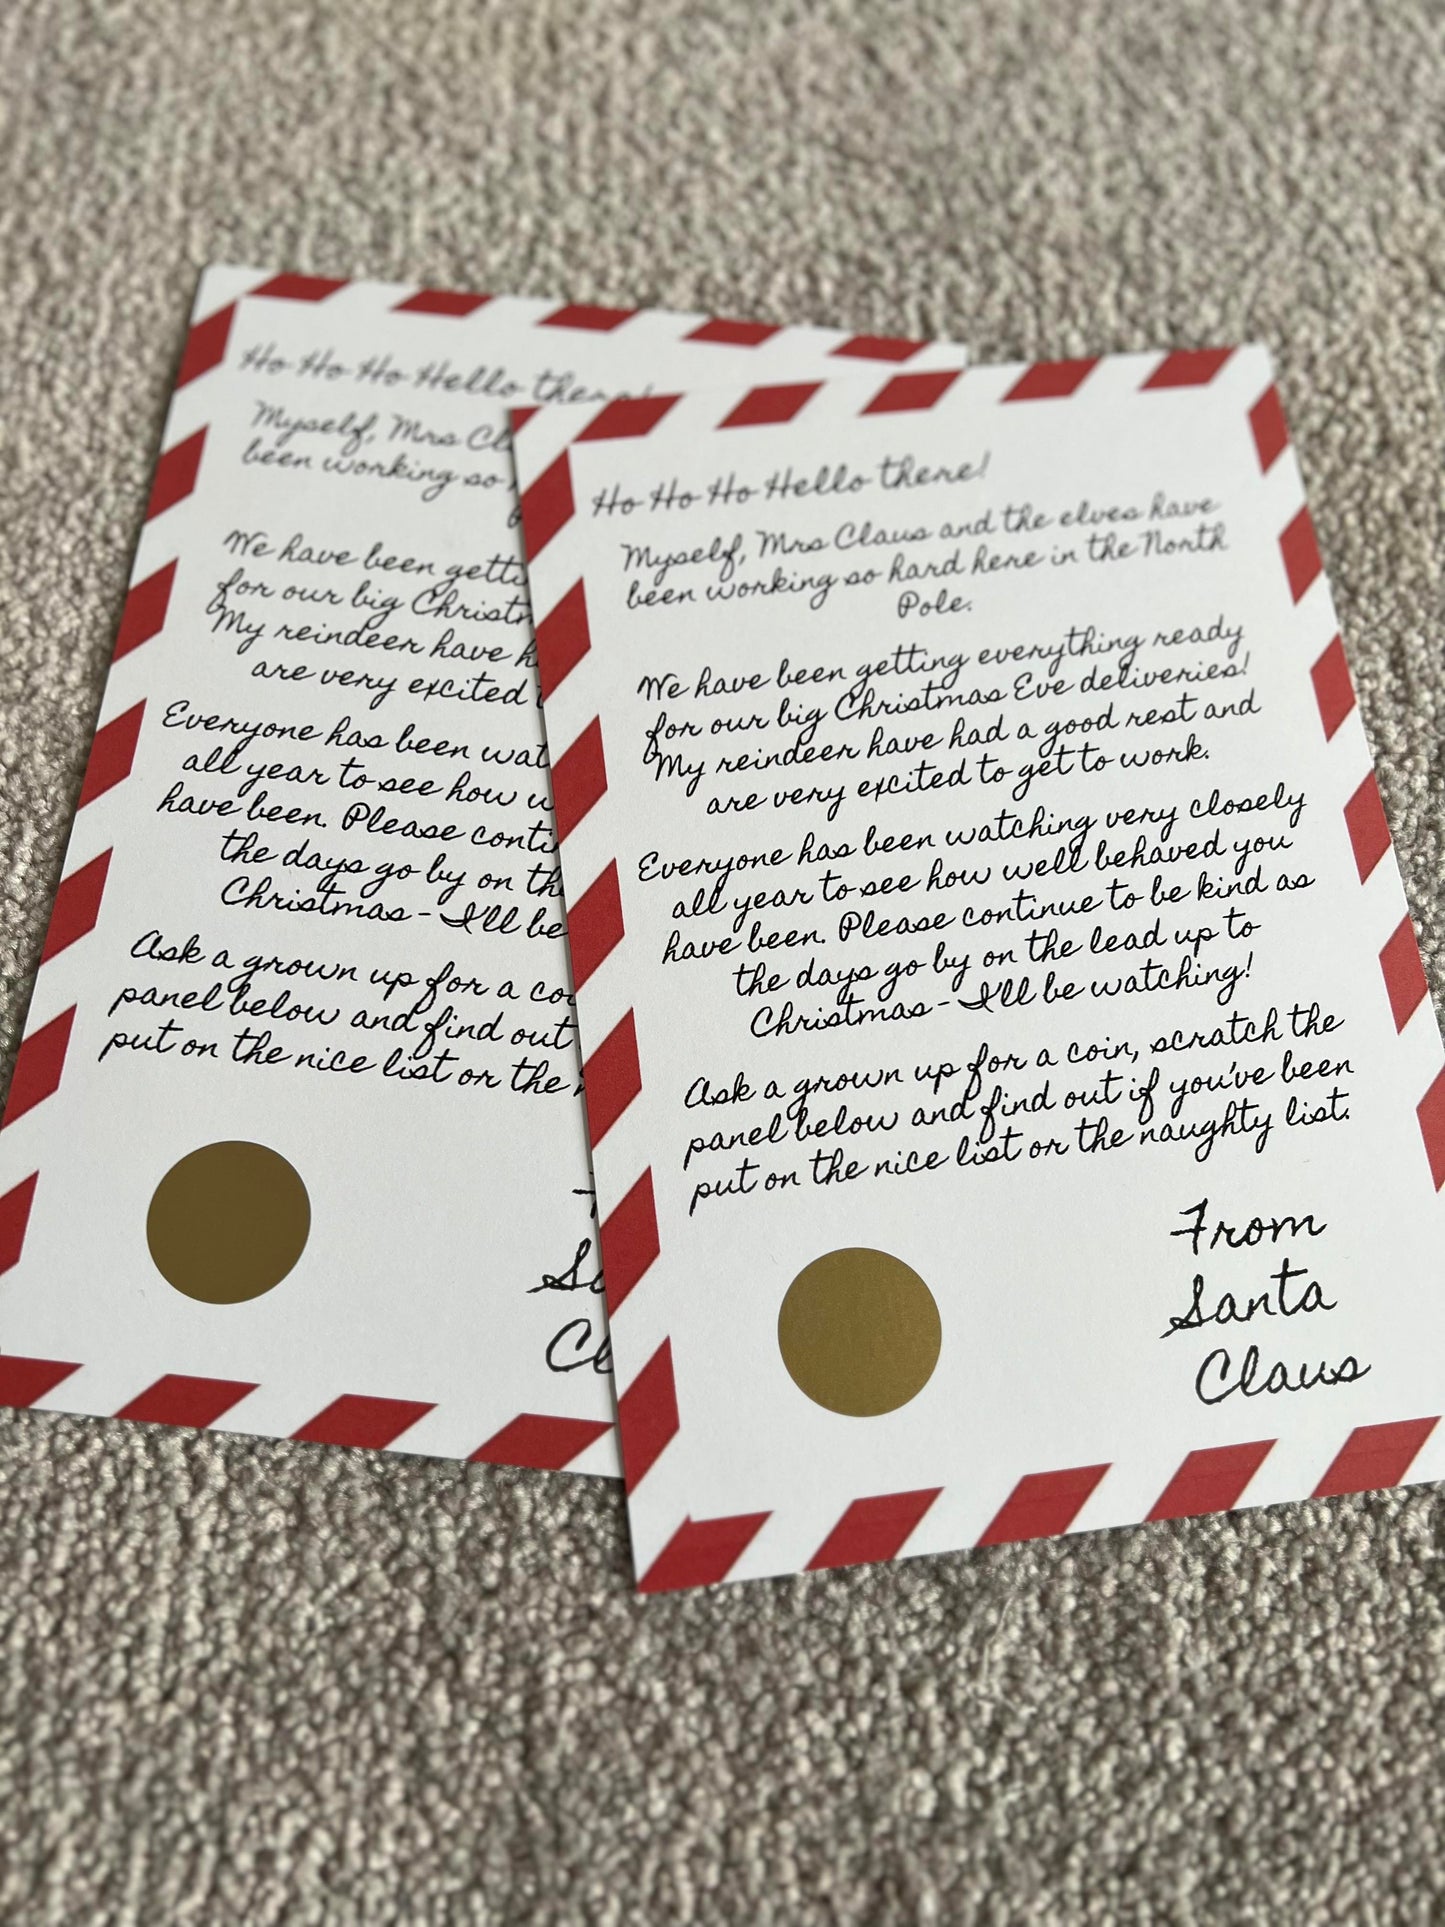 Ho Ho Ho Hello there!
Myself, Mrs Cl
been working so
We have been getti
for our big Christm
My reindeer have h
are very excited
Everyone has been wat
all year to see how w
have been. Please conti
the days go by on th
Christmas - I'll be
Ask a grown up for a co
panel below and find out
put on the nice list or the
S
Cl
Ho Ho Ho Hello there!
Myself, Mrs Claus and the elves have
been working so hard here in the North
Pole.
We have been getting everything ready
for our big Christmas Eve deliveries!
My reindeer have had a good rest and
are very excited to get to work.
Everyone has been watching very closely
all year to see how well behaved you
have been. Please continue to be kind as
the days go by on the lead up to
Christmas - I'll be watching!
Ask a grown up for a coin, scratch the
panel below and find out if you've been
put on the nice list or the naughty list.
From
Santa
Claus